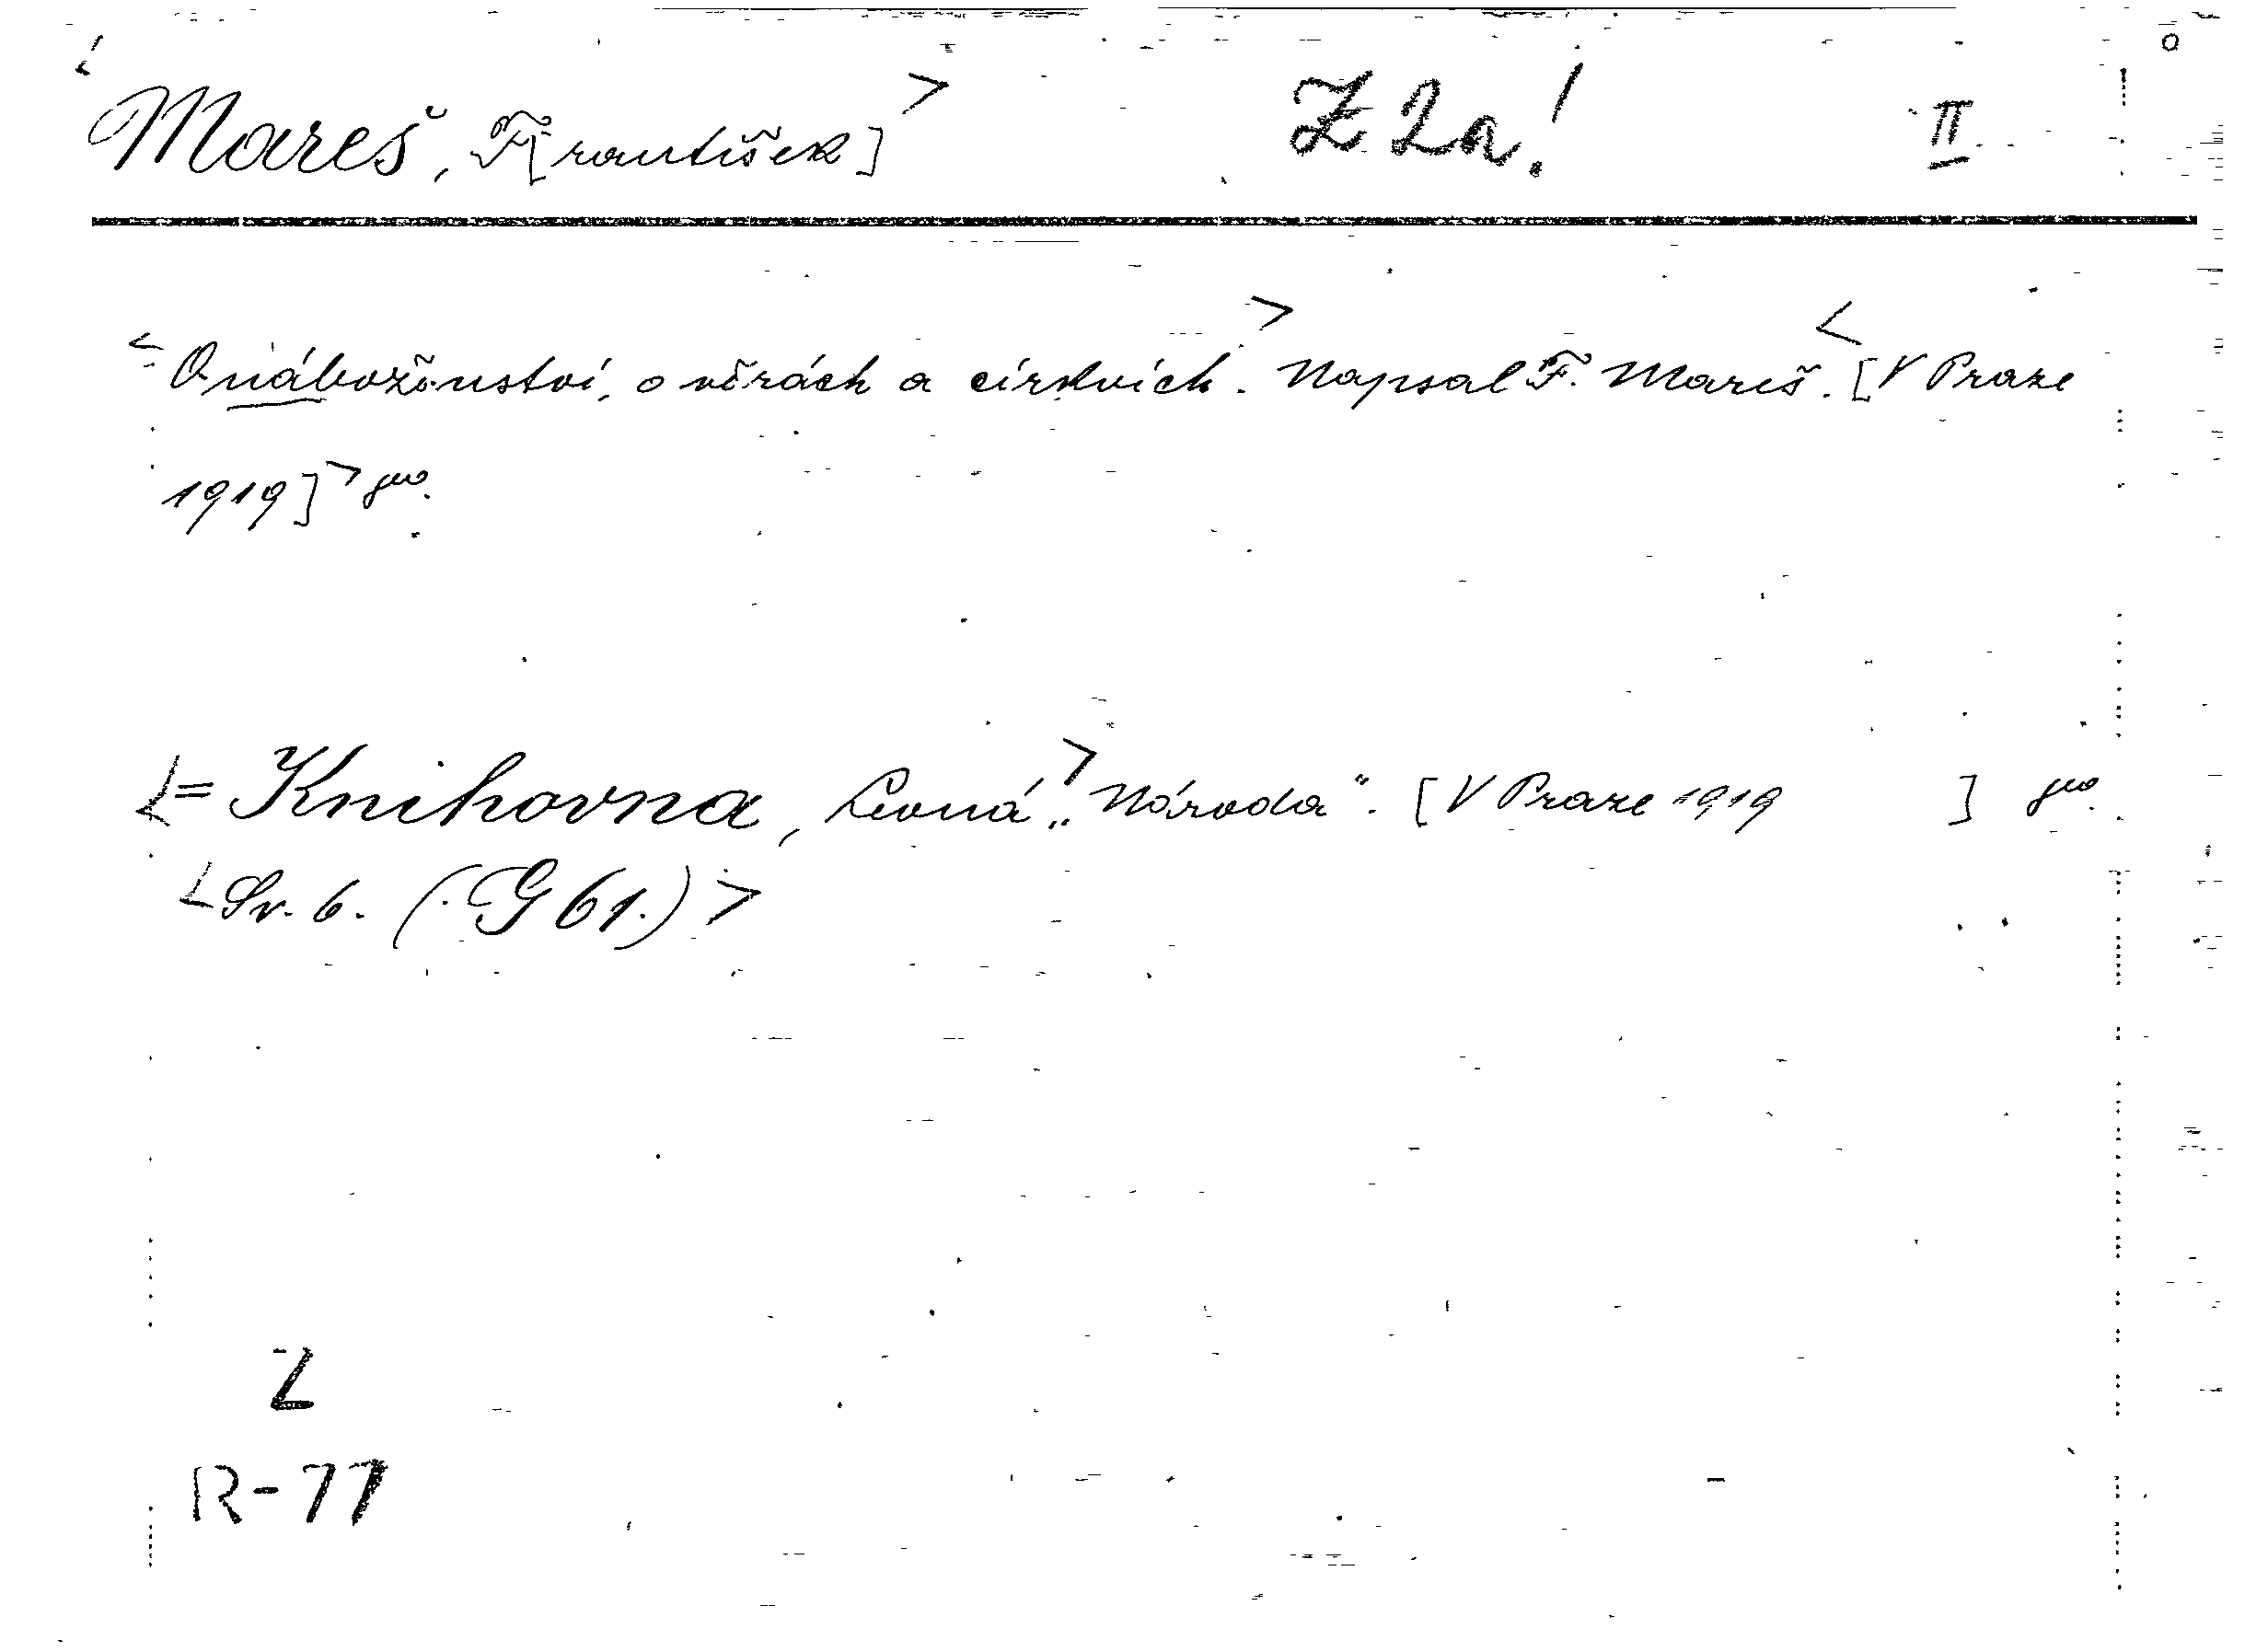 <Mareš, F[rantišek]> Z 2a! II
<O náboženství, o věrách a církvích.> Napsal F. Mareš. <[V Praze
1919]> 8vo.
<= Knihovna, Levná> „Národa". [V Praze 1919 ] 8vo.
<Sv. 6. (G 61.)>
Z
R-77